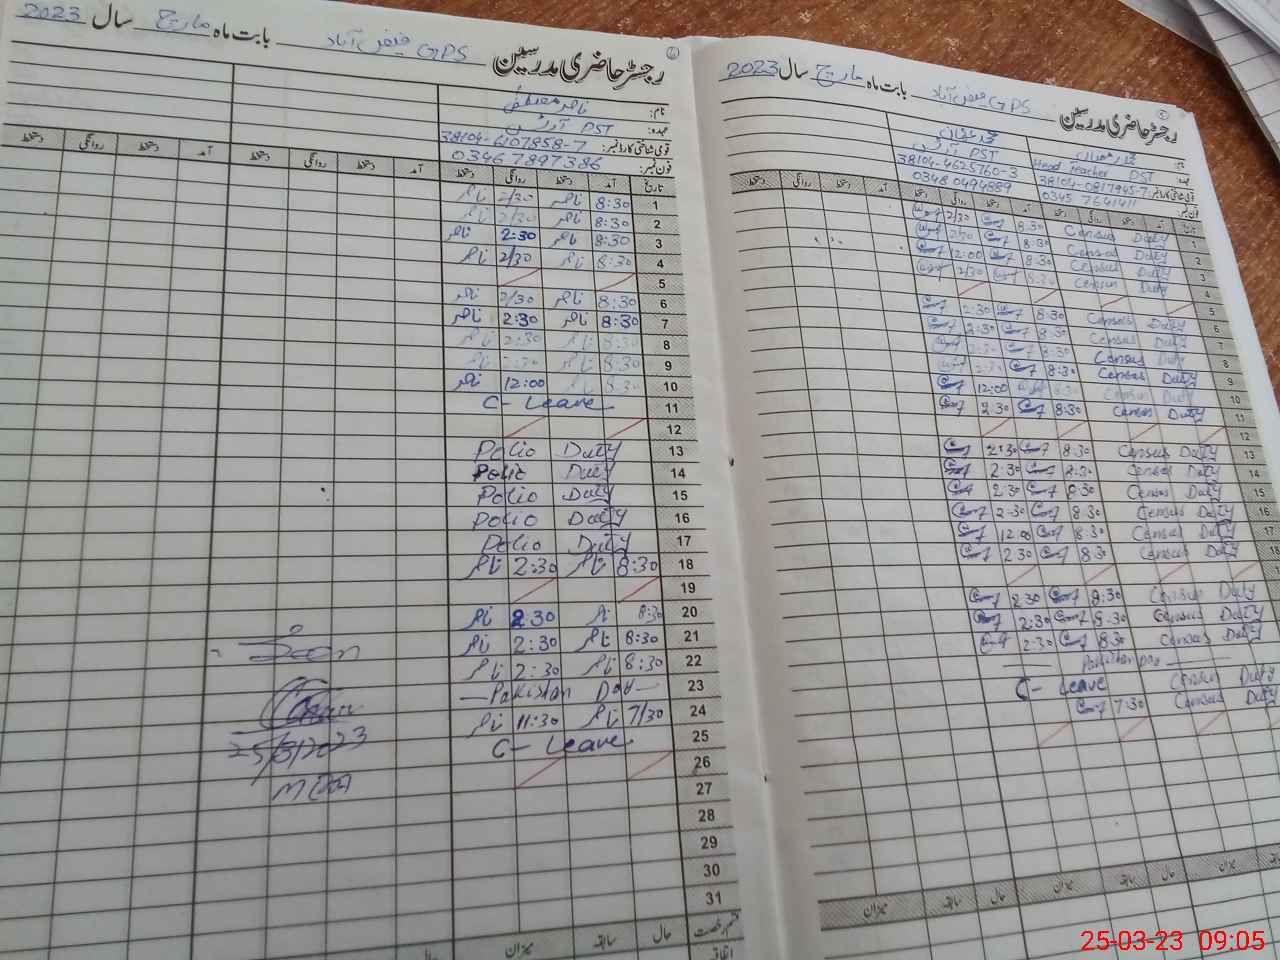 رجسٹر حاضری مدرسین GPS فیض آباد بابت ماہ مارچ سال 2023
نام:
عہدہ: PST
قومی شناختی کارڈ نمبر: 38104-6107858-7
فون نمبر: 0346 7897386
تاریخ آمد دستخط روانگی دستخط آمد دستخط روانگی دستخط آمد دستخط روانگی دستخط
1 8:30 ناصر 2/30 ناصر
2 8:30 ناصر 2/30 ناصر
3 8:30 ناصر 2:30 ناصر
4 8:30 ناصر 2/30 ناصر
5
6 8:30 ناصر 2/30 ناصر
7 8:30 ناصر 2:30 ناصر
8 8:30 ناصر 2:30 ناصر
9 8:30 ناصر 2:30 ناصر
10 8:30 ناصر 12:00 ناصر
11 C- Leave
12
13 Polio Duty
14 Polio Duty
15 Polio Duty
16 Polio Duty
17 Polio Duty
18 8:30 ناصر 2:30 ناصر
19
20 8:30 ناصر 2:30 ناصر
21 8:30 ناصر 2:30 ناصر
22 8:30 ناصر 2:30 ناصر
23 Pakistan Day
24 7/30 ناصر 11:30 ناصر
25 C- Leave
26
27
28
29
30
31
25/3/2023
حال سابقہ میزان حال
رجسٹر حاضری مدرسین GPS فیض آباد بابت ماہ مارچ سال 2023
نام: محمد رمضان محمد عثمان
عہدہ: Head Teacher PST PST
38104-0817945-7 38104-4625760-3
فون نمبر: 0345 7641411 0348 0494889
تاریخ آمد دستخط روانگی دستخط آمد دستخط روانگی دستخط آمد دستخط روانگی دستخط
1 Census Duty 8:30 2/30
2 Census Duty 8:30 2/30
3 Census Duty 8:30 12:00
4 Census Duty 8:30 2/30
5
6 Census Duty 8:30 2:30
7 Census Duty 8:30 2:30
8 Census Duty 8:30 2:30
9 Census Duty 8:30 2:30
10 Census Duty 8:30 12:00
11 Census Duty 8:30 2:30
12
13 Census Duty 8:30 2:30
14 Census Duty 8:30 2:30
15 Census Duty 8:30 2:30
16 Census Duty 8:30 2:30
17 Census Duty 8:30 12:00
Census Duty 8:30 2:30
Census Duty 8:30 2:30
Census Duty 8:30 2:30
Census Duty 8:30 2:30
Pakistan Day
Census Duty C- Leave
Census Duty 7:30
میزان حال سابقہ میزان حال سابقہ میزان
25-03-23 09:05